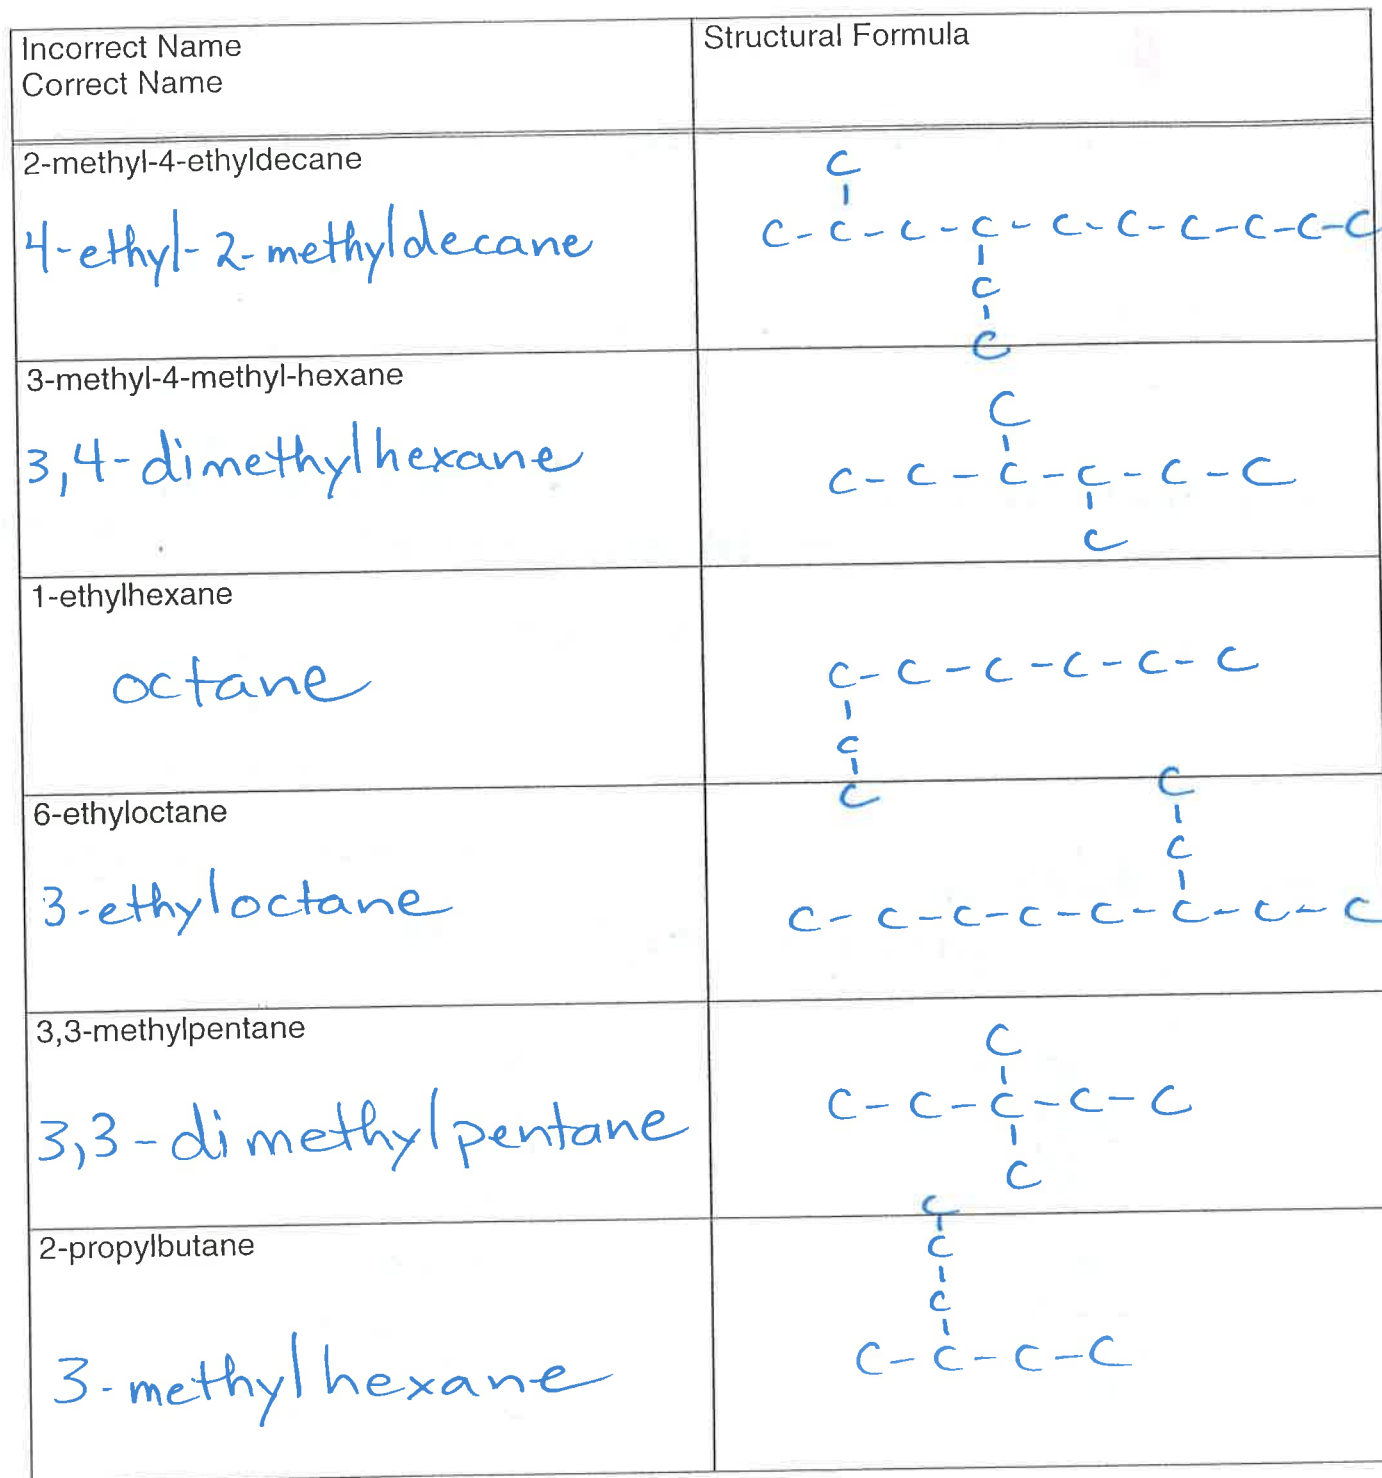 Incorrect Name
Correct Name
Structural Formula
2-methyl-4-ethyldecane
4-ethyl-2-methyldecane
C
C-C-C-C-C-C-C-C-C-C
C
C
3-methyl-4-methyl-hexane
3,4-dimethylhexane
C
C-C-C-C-C-C
C
1-ethylhexane
octane
C-C-C-C-C-C
C
C
6-ethyloctane
3-ethyloctane
C
C
C-C-C-C-C-C-C-C
3,3-methylpentane
3,3-dimethylpentane
C
C-C-C-C-C
C
2-propylbutane
3-methylhexane
C
C
C
C-C-C-C